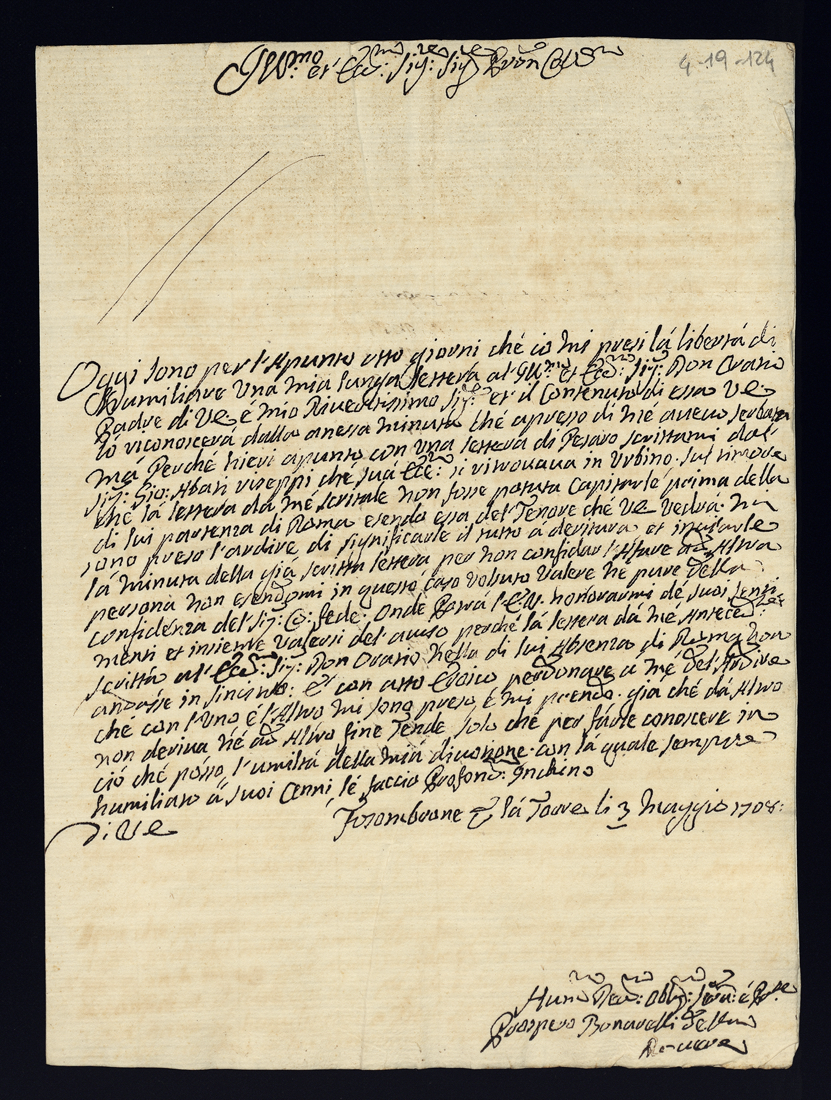 Ill.mo et Ecc.mo Sig.re Sig.re
4-19-124
Oggi sono per l'apunto otto giorni ché io mi presi lá libertá di
humiliare Una mia lunga lettera al'Ill.mo et Ecc.mo Sig.r Don Orazio
Padre di VE. é mio Riveritissimo Sig.re et il Contenuto di essa VE.
lo riconoscerá dalla anessa minuta ché apresso di mé avevo serbata
ma Perché hieri apunto con una lettera di Pesaro scrittami dal'
Sig.r Gio: Abati riseppi ché sua Ecc.za si ritrovava in Urbino. sul timore
ché lá lettera dá mé scritale non fosse potuta Capitarle prima della
di lui partenza di Roma esendo essa del'Tenore ché VE vedrá. mi
sono preso l'ardire di significarle il tutto á deritura et inviarle
lá minuta della giá scritta lettera per non confidar l'Afare ad Altra
persona non esendomi in questo caso voluto valere né pure della
confidenza del'Sig.r Co: fede. Onde Potrá l'EV. honorarmi dé suoi senti
menti et insieme valersi del'aviso perché lá lettera dá mé Anteced.te
scritta al'Ecc.mo Sig.r Don Orazio nella di lui Absenza di Roma non
andasse in sinistro. Et con atto Eroico perdonare á mé del'Ardire
ché con l'Uno é l'Altro mi sono preso é mi prendo. giá ché dá Altro
non deriva né ad Altro fine Tende, solo ché per farle conoscere in
ció ché posso l'umiltá della miá divozione con lá quale sempre
humiliato á suoi Cenni lé faccio Profond. Inchino
di VE
Fosombrone lá Torre li 3 Maggio 1708:
Hum.mo Dev.mo Obl.mo
Prospero Bonarelli Della
Rovere